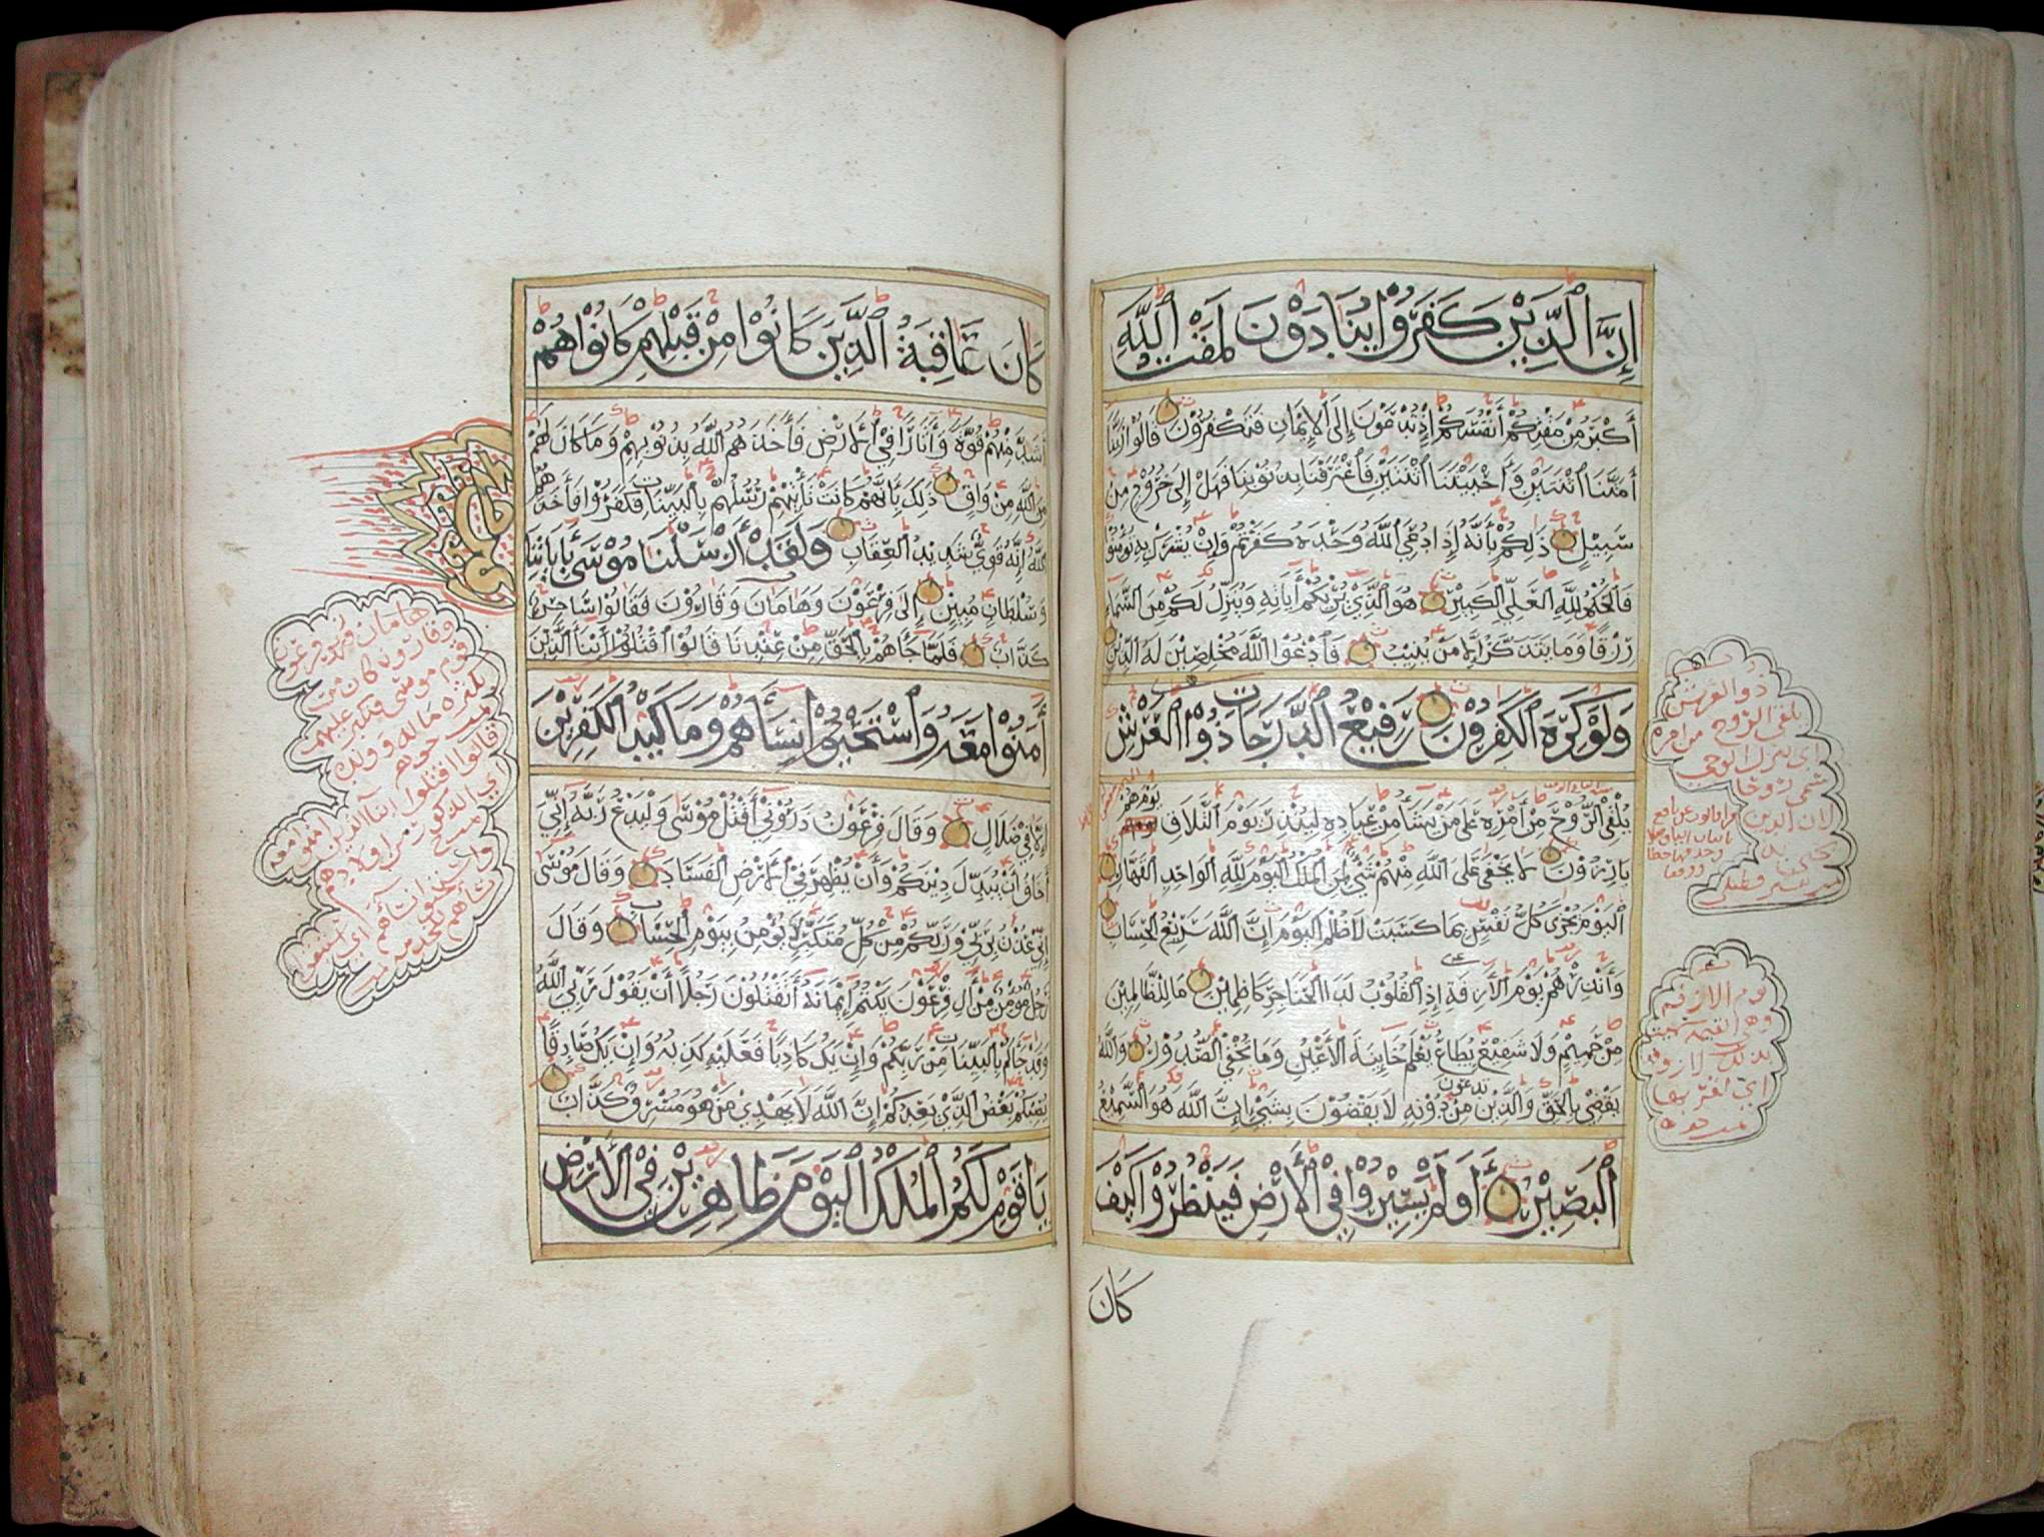 إِنَّ الَّذِيْنَ كَفَرُوْا يُنَادَوْنَ لَمَقْتُ اللَّهِ
أَكْبَرُ مِنْ مَقْتِكُمْ أَنْفُسَكُمْ إِذْ تُدْعَوْنَ إِلَى الْإِيْمَانِ فَتَكْفُرُوْنَ قَالُوْا رَبَّنَا
أَمَتَّنَا اثْنَتَيْنِ وَأَحْيَيْتَنَا اثْنَتَيْنِ فَاعْتَرَفْنَا بِذُنُوْبِنَا فَهَلْ إِلَى خُرُوْجٍ مِنْ
سَبِيْلٍ ذَلِكُمْ بِأَنَّهُ إِذَا دُعِيَ اللَّهُ وَحْدَهُ كَفَرْتُمْ وَإِنْ يُشْرَكْ بِهِ تُؤْمِنُوْا
فَالْحُكْمُ لِلَّهِ الْعَلِيِّ الْكَبِيْرِ هُوَ الَّذِيْ يُرِيْكُمْ أَيَاتِهِ وَيُنَزِّلُ لَكُمْ مِنَ السَّمَاءِ
رِزْقًا وَمَا يَتَذَكَّرُ إِلَّا مَنْ يُنِيْبُ فَادْعُوْا اللَّهَ مُخْلِصِيْنَ لَهُ الدِّيْنَ
وَلَوْ كَرِهَ الْكَفِرُوْنَ رَفِيْعُ الدَّرَجَاتِ ذُوْ الْعَرْشِ
يُلْقِيْ الرُّوْحَ مِنْ أَمْرِهِ عَلَى مَنْ يَشَاءُ مِنْ عِبَادِهِ لِيُنْذِرَ يَوْمَ التَّلَاقِ يَوْمَ هُمْ
بَارِزُوْنَ لَا يَخْفَى عَلَى اللَّهِ مِنْهُمْ شَيْءٌ لِمَنِ الْمُلْكُ الْيَوْمَ لِلَّهِ الْوَاحِدِ الْقَهَّارِ
الْيَوْمَ تُجْزَى كُلُّ نَفْسٍ بِمَا كَسَبَتْ لَا ظُلْمَ الْيَوْمَ إِنَّ اللَّهَ سَرِيْعُ الْحِسَابِ
وَأَنْذِرْهُمْ يَوْمَ الْأَزِفَةِ إِذِ الْقُلُوْبُ لَدَى الْحَنَاجِرِ كَاظِمِيْنَ مَا لِلظَّالِمِيْنَ
مِنْ حَمِيْمٍ وَلَا شَفِيْعٍ يُطَاعُ يَعْلَمُ خَايِنَةَ الْأَعْيُنِ وَمَا تُخْفِيْ الصُّدُوْرُ وَاللَّهُ
يَقْضِيْ بِالْحَقِّ وَالَّذِيْنَ تدعون مِنْ دُوْنِهِ لَا يَقْضُوْنَ بِشَيْءٍ إِنَّ اللَّهَ هُوَ السَّمِيْعُ
الْبَصِيْرُ أَوَلَمْ يَسِيْرُوْا فِيْ الْأَرْضِ فَيَنْظُرُوْا كَيْفَ
كَانَ
ذو العرش
يلقي الروح من امره
اي ينزل الوحي
سمي روحا
لان الدين
يوم الازفة
وهي القيمة سميت
بذلك لازوفها
اي لقربها
كَانَ عَاقِبَةُ الَّذِيْنَ كَانُوْا مِنْ قَبْلِهِمْ كَانُوْا هُمْ
أَشَدَّ مِنْهُمْ قُوَّةً وَأَثَارًا فِيْ الْأَرْضِ فَأَخَذَهُمُ اللَّهُ بِذُنُوْبِهِمْ وَمَا كَانَ لَهُمْ
مِنَ اللَّهِ مِنْ وَاقٍ ذَلِكَ بِأَنَّهُمْ كَانَتْ تَأْتِيْهِمْ رُسُلُهُمْ بِالْبَيِّنَاتِ فَكَفَرُوْا فَأَخَذَهُمُ
اللَّهُ إِنَّهُ قَوِيٌّ شَدِيْدُ الْعِقَابِ وَلَقَدْ أَرْسَلْنَا مُوْسَى بِأَيَاتِنَا
وَسُلْطَانٍ مُبِيْنٍ إِلَى فِرْعَوْنَ وَهَامَانَ وَقَارُوْنَ فَقَالُوْا سَاحِرٌ
كَذَّابٌ فَلَمَّا جَاءَهُمْ بِالْحَقِّ مِنْ عِنْدِنَا قَالُوْا اقْتُلُوْا أَبْنَاءَ الَّذِيْنَ
أَمَنُوْا مَعَهُ وَاسْتَحْيُوْا نِسَاءَهُمْ وَمَا كَيْدُ الْكَفِرِيْنَ
إِلَّا فِيْ ضَلَالٍ وَقَالَ فِرْعَوْنُ ذَرُوْنِيْ أَقْتُلْ مُوْسَى وَلْيَدْعُ رَبَّهُ إِنِّيْ
أَخَافُ أَنْ يُبَدِّلَ دِيْنَكُمْ وَأَنْ يُظْهِرَ فِيْ الْأَرْضِ الْفَسَادَ وَقَالَ مُوْسَى
إِنِّيْ عُذْتُ بِرَبِّيْ وَرَبِّكُمْ مِنْ كُلِّ مُتَكَبِّرٍ لَا يُؤْمِنُ بِيَوْمِ الْحِسَابِ وَقَالَ
رَجُلٌ مُؤْمِنٌ مِنْ أَلِ فِرْعَوْنَ يَكْتُمُ إِيْمَانَهُ أَتَقْتُلُوْنَ رَجُلًا أَنْ يَقُوْلَ رَبِّيَ اللَّهُ
وَقَدْ جَاءَكُمْ بِالْبَيِّنَاتِ مِنْ رَبِّكُمْ وَإِنْ يَكُ كَاذِبًا فَعَلَيْهِ كَذِبُهُ وَإِنْ يَكُ صَادِقًا
يُصِبْكُمْ بَعْضُ الَّذِيْ يَعِدُكُمْ إِنَّ اللَّهَ لَا يَهْدِيْ مَنْ هُوَ مُسْرِفٌ كَذَّابٌ
يَا قَوْمِ لَكُمُ الْمُلْكُ الْيَوْمَ ظَاهِرِيْنَ فِيْ الْأَرْضِ
وقارون كان من
قوم موسى فتكبر عليهم
بكثرة ماله وولده
قالوا اقتلوا ابنا الذين امنوا معه
اي الذكور من اولادهم